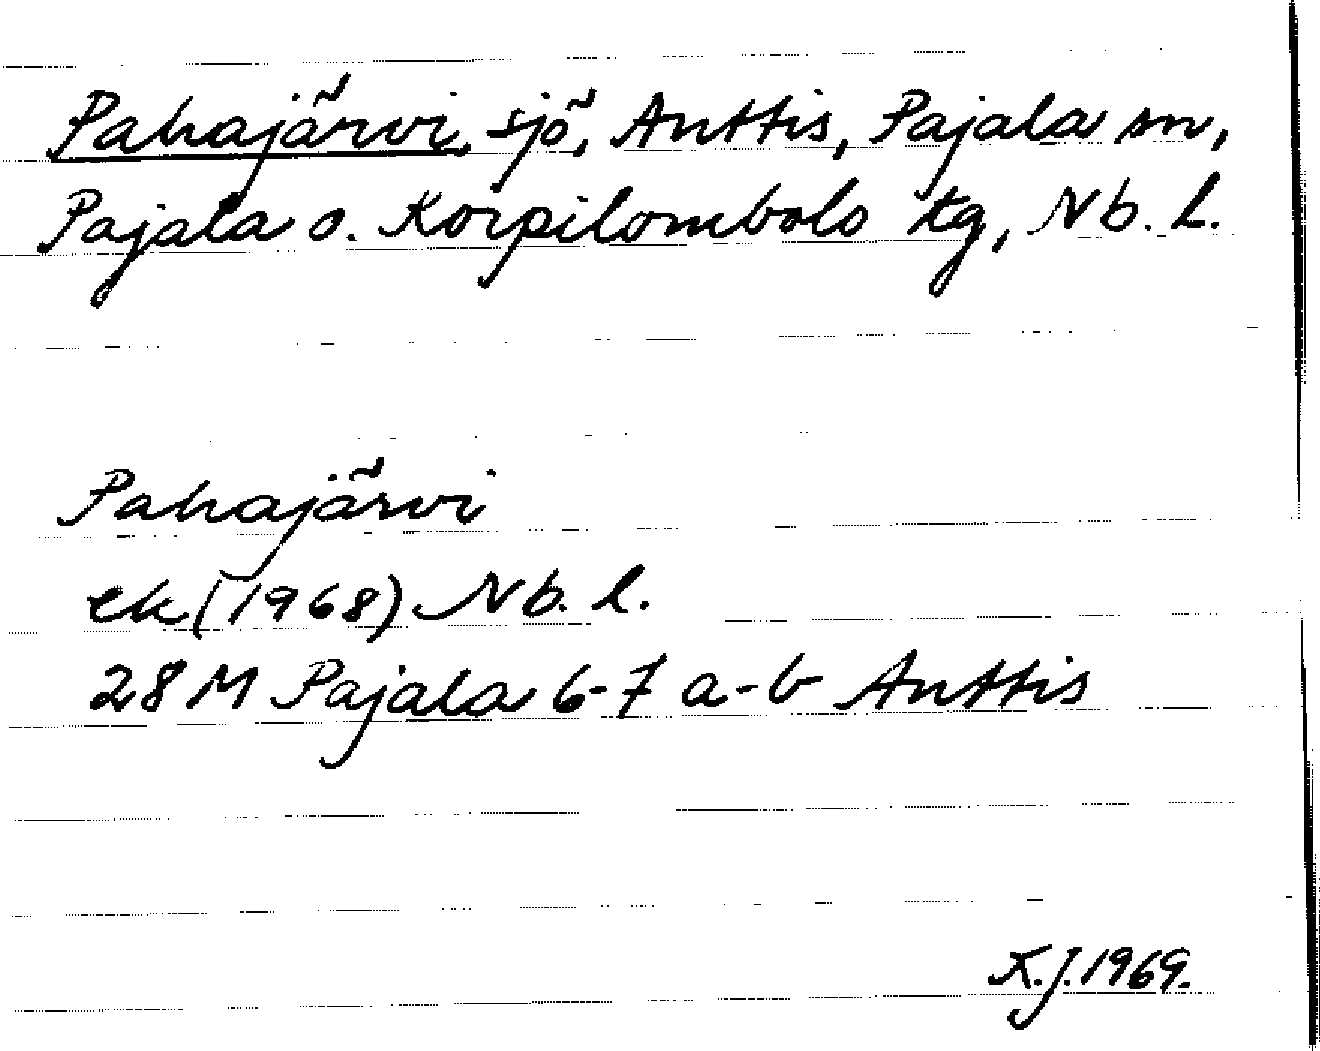 Pahajärvi, sjö, Anttis, Pajala sn,
Pajala o. Korpilombolo tg, Nb. l.
Pahajärvi
ek (1968) Nb. l.
28 M Pajala 6-7 a-b Anttis
K.J. 1969.